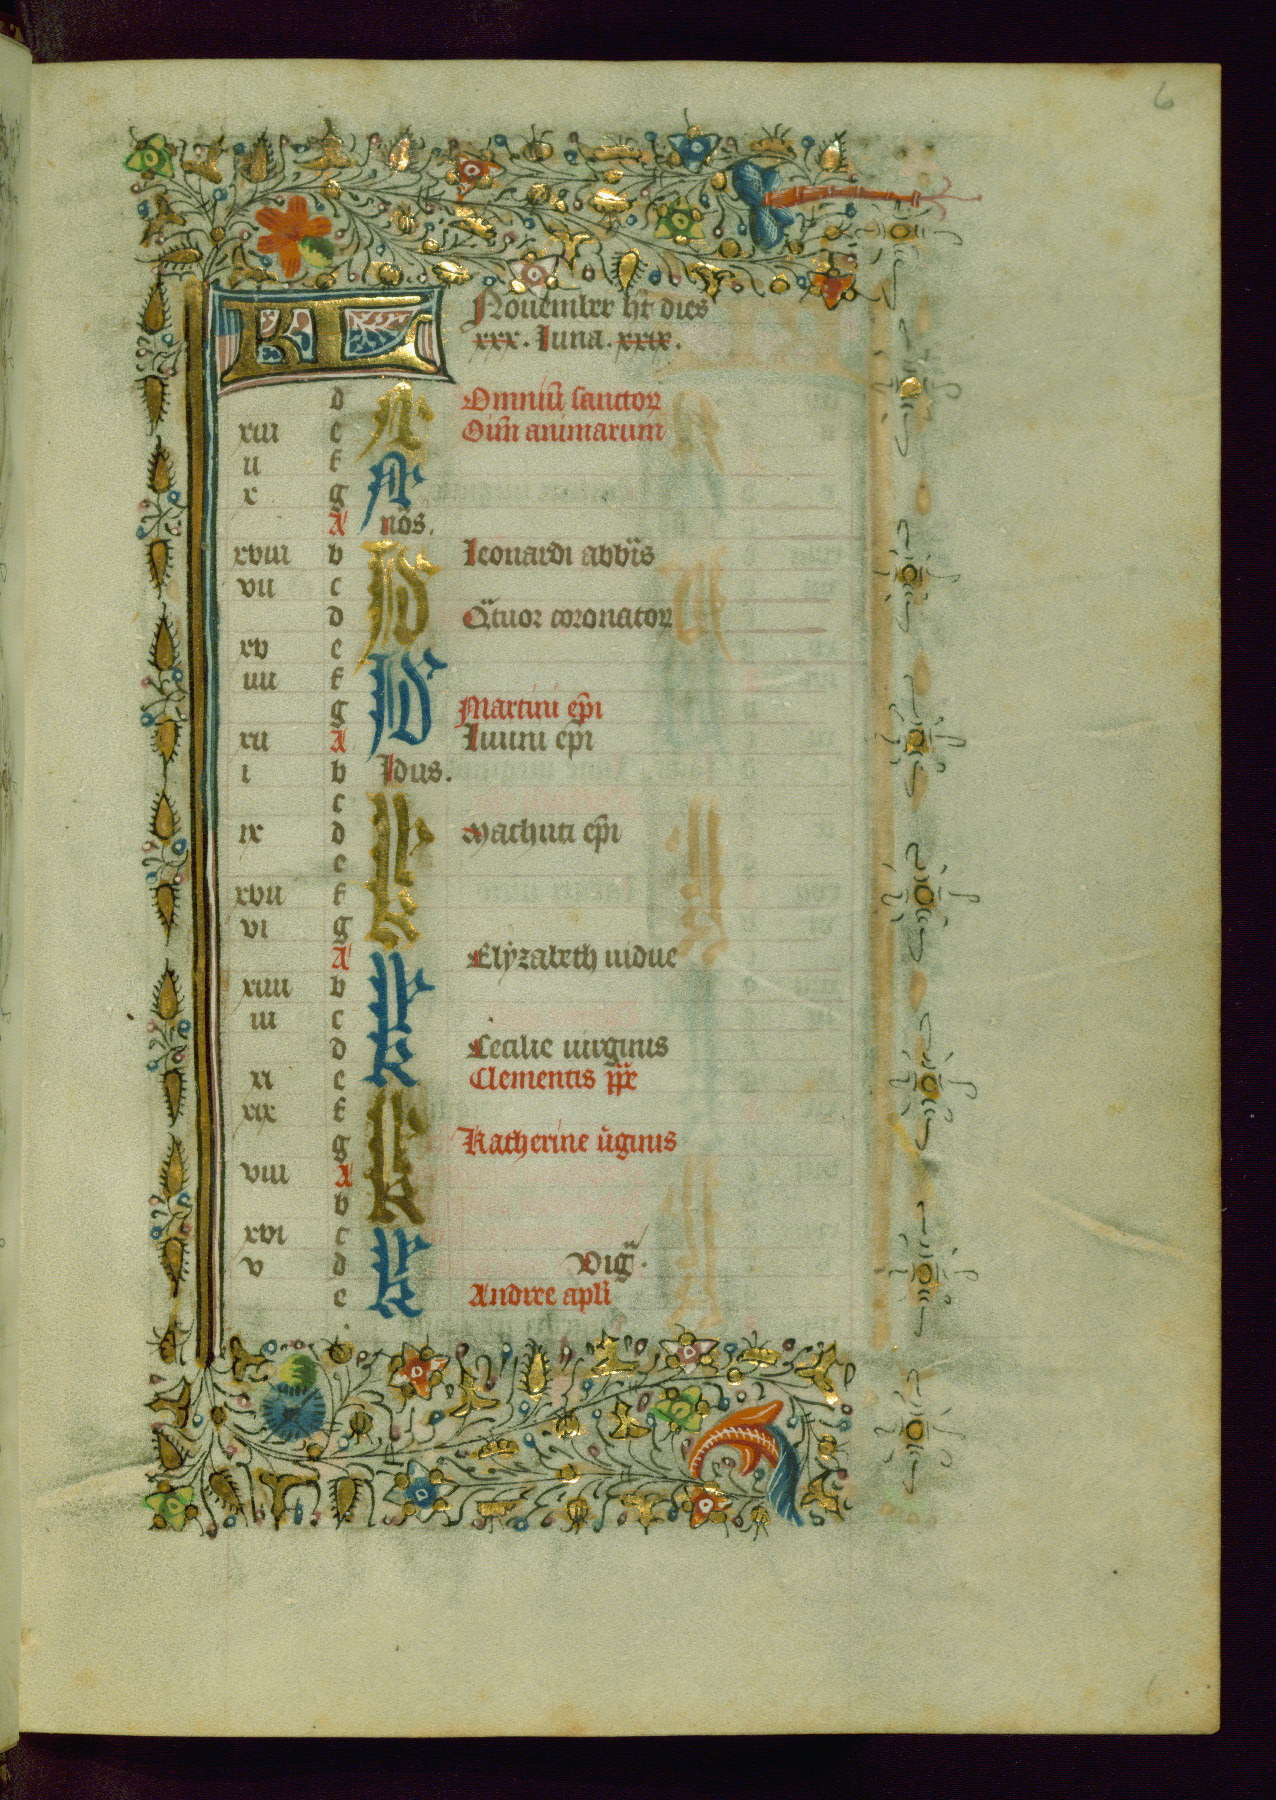 6
KL Nouember h̄t dies
xxx. luna. xxix.
d N Omniū sanctoꝝ
xiii e Oīm animarum
ii f N
x g
A nōs.
xviii b Id leonardi abb̄is
vii c
d Qͣtuor coronatoꝝ
xv e Id
iiii f
g Martini ep̄i
xii A liuini ep̄i
i b Idus.
c kl
ix d Machuti ep̄i
e
xvii f
vi g
A kl Elyzabeth uidue
xiiii b
iii c
d Cecilie uirginis
xi e Clementis pp̄e
xix f kl
g Katherine ūginis
viii A
b
xvi c kl
v d Vigͣ.
e Andree apl̄i